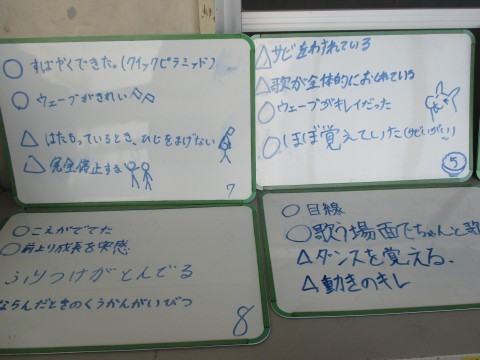 ○すばやくできた。(クイックピラミッド)
○ウェーブがきれい
△はたもっているとき、ひじをまげない
△完全停止する
7
△サビ忘れている
△歌が全体的におくれている
○ウェーブがキレイだった
○ほぼ覚えていた(サビいがい!)
5
○こえがでてた
○前より成長を実感
ふりつけがとんでる
ならんだときのくうかんがいびつ
8
○目線
○歌う場面でちゃんと歌
△ダンスを覚える、
△動きのキレ